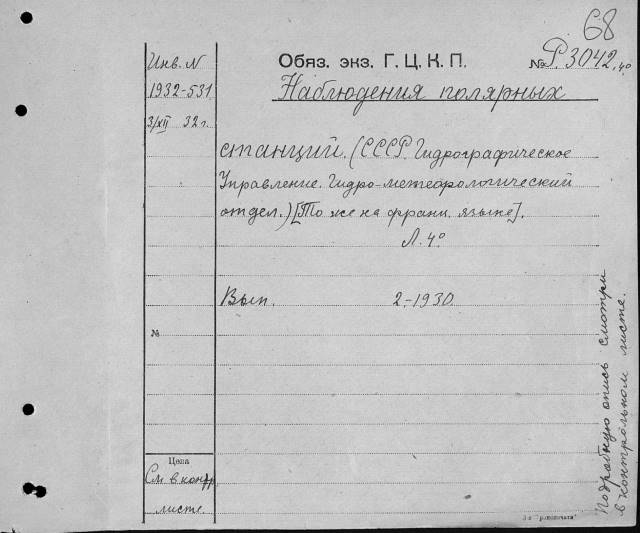 68
Инв. N
Обяз. экз. Г. Ц. К. П.
№ Р 3042.4°
1932-531
3/XII 32 г.
Наблюдения полярных
станций. (СССР. Гидрографическое
Управление. Гидро-метеорологический
отдел.) [То же на франц. языке].
Л. 4°
Вып. 2.-1930.
№
Цена
См. в контр.
листе
Подробную опись смотри
в контрольном листе.